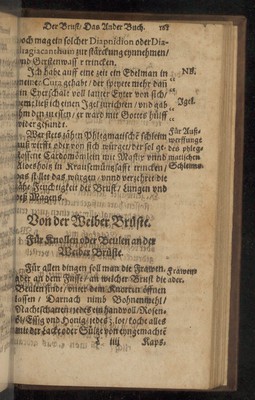 Der Brust / Das Ander Buch.
noch mag ein solcher Diapnidion oder Dia-
dragacanthum zur stärckung eynnemmen /
vnd Gerstenwasser trincken.
Ich habe auff eine zeit ein Edelman in
meiner Cura gehabt / der speyete mehr dann
ein Eyerschale voll lauter Eyter von sich /
dem ließ ich einen Igel zurichten / vnd gab
ihm den zu essen / er ward mit Gottes hülff
wider gesundt.
NB.
Igel.
Wer stets zähen Phlegmatische schleim
außwirfft oder von sich würget / der sol ge-
stossene Cardomömlein mit Mastix vnnd
in Krausemüntzsafft trincken /
das stillet das würgen / vnnd verzehret die
zähe Feuchtigkeit der Brust / Lungen vnd
deß Magens.
Für Auß-
werffunge
des phleg-
matischen
Schleims.
Von der Weiber Brüste.
Für Knollen oder Beulen an der
Weiber Brüste.
Für allen dingen soll man die Frawen
oder an dem Fusse / an welcher Brust die
Beulen sinde / vnter dem Knorren öffnen
lassen / Darnach nimb Bohnenmehl /
Nachtschatten / jedes ein handvoll / Rosen-
öl / Essig vnd Honig / jedes lot / koche alles
mit der Lacke oder Sültze von eyngemachte
Frawen
ader.
iiij Kaps,